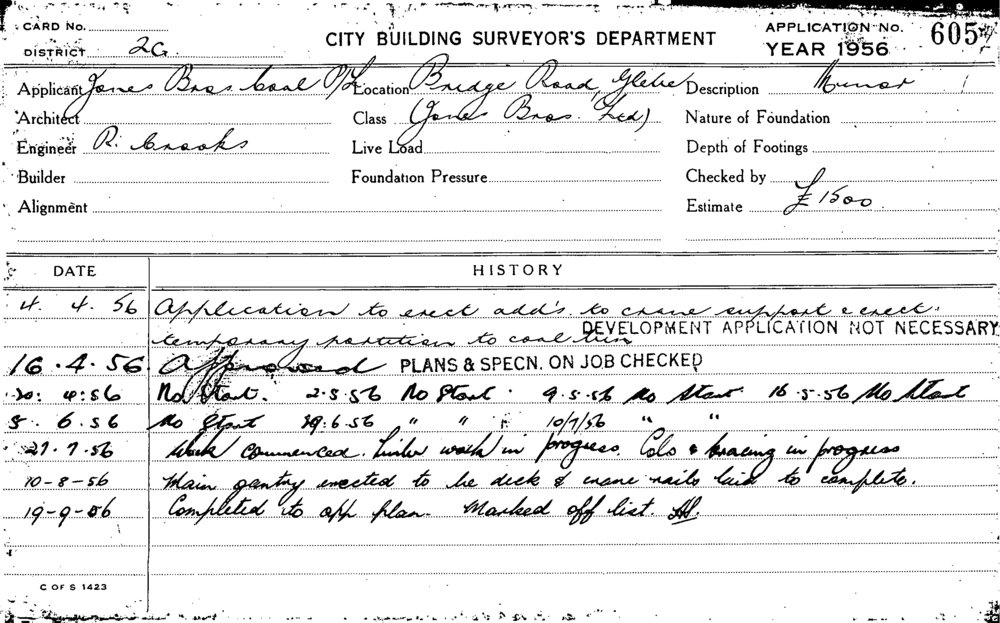 CARD No.
DISTRICT 2G
CITY BUILDING SURVEYOR'S DEPARTMENT
APPLICATION No. 605
YEAR 1956
Applicant Jones Bros Coal P/L Location Bridge Road, Glebe Description Minor
Architect Class (Jones Bros. Ltd) Nature of Foundation
Engineer R. Crooks Live Load Depth of Footings
Builder Foundation Pressure Checked by
Alignment Estimate £1500
DATE HISTORY
4. 4. 56 Application to erect add's to crane support & erect
temporary partition to coal bin DEVELOPMENT APPLICATION NOT NECESSARY
16.4.56 Approved PLANS & SPECN. ON JOB CHECKED
20: 4:56 No Start. 2.5.56 No Start. 9.5.56 No Start 16.5.56 No Start
5. 6.56 No Start 29.6.56 " " 10/7/56 " "
27.7.56 Work commenced. Timber work in progress. Cols & bracing in progress
10-8-56 Main gantry erected to be deck & crane rails laid to complete.
19-9-56 Completed to app plan. Marked off list.
C OF S 1423